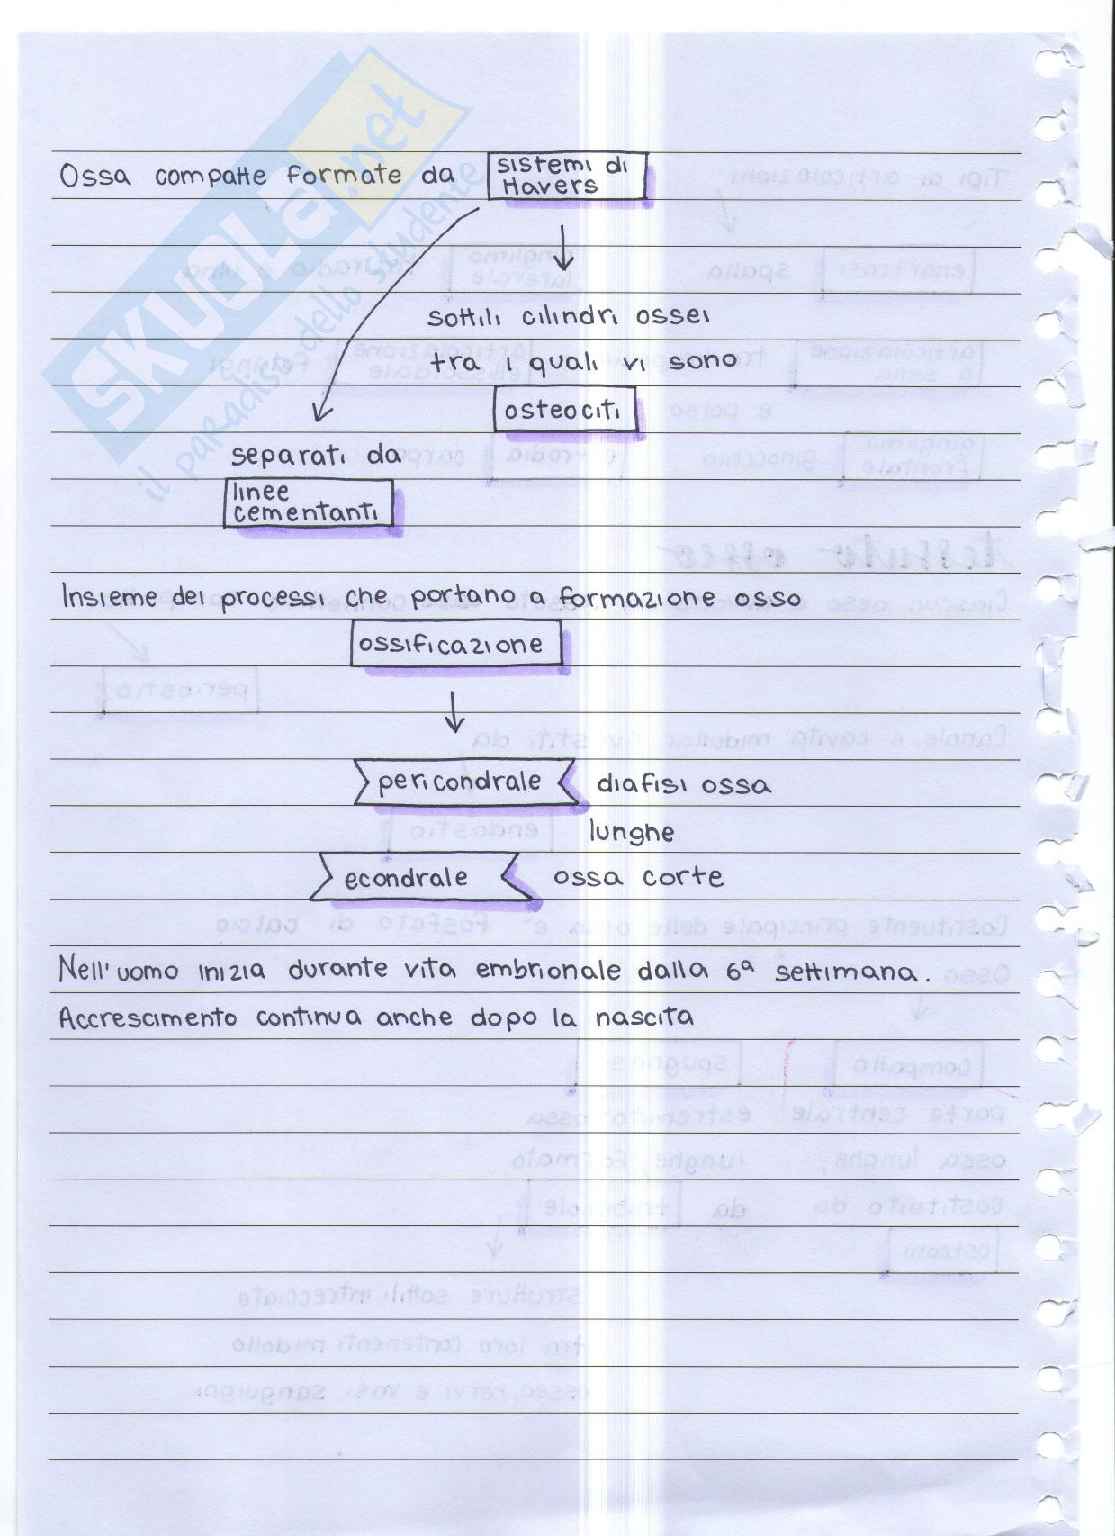 SKUOLA.net
il paradiso dello studente
Ossa compatte formate da sistemi di
Havers
sottili cilindri ossei
tra i quali vi sono
osteociti
separati da
linee
cementanti
Insieme dei processi che portano a formazione osso
ossificazione
pericondrale diafisi ossa
lunghe
econdrale ossa corte
Nell'uomo inizia durante vita embrionale dalla 6ª settimana.
Accrescimento continua anche dopo la nascita